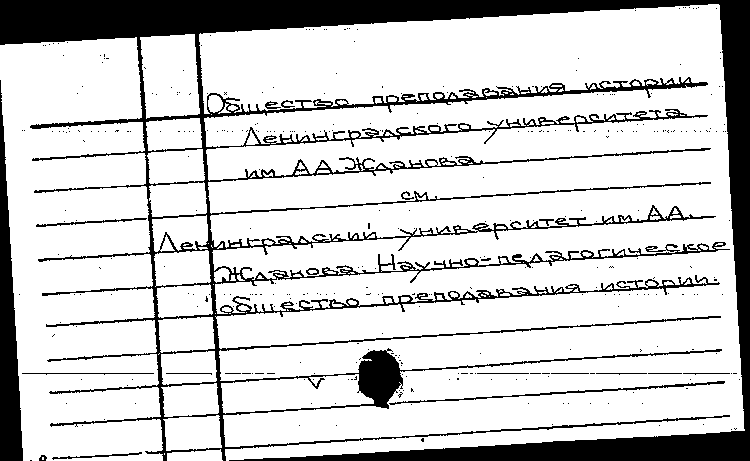 Общество преподавания истории
Ленинградского университета
им. А.А. Жданова.
см.
Ленинградский университет им. А.А.
Жданова. Научно-педагогическое
общество преподавания истории.